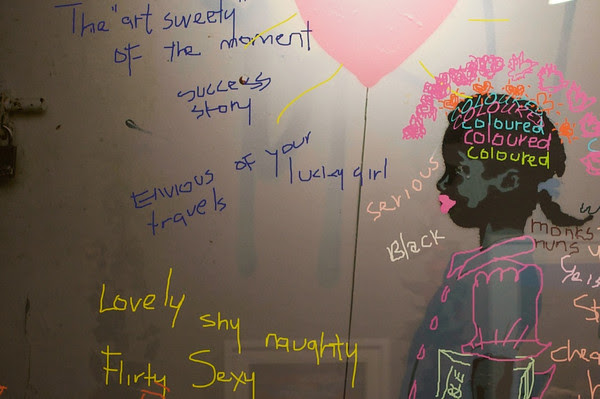 The "art sweety"
of the moment
success
story
Envious of your
lucky girl
travels
Lovely shy naughty
Flirty Sexy
coloured
coloured
coloured
coloured
serious
Black
monks
nuns